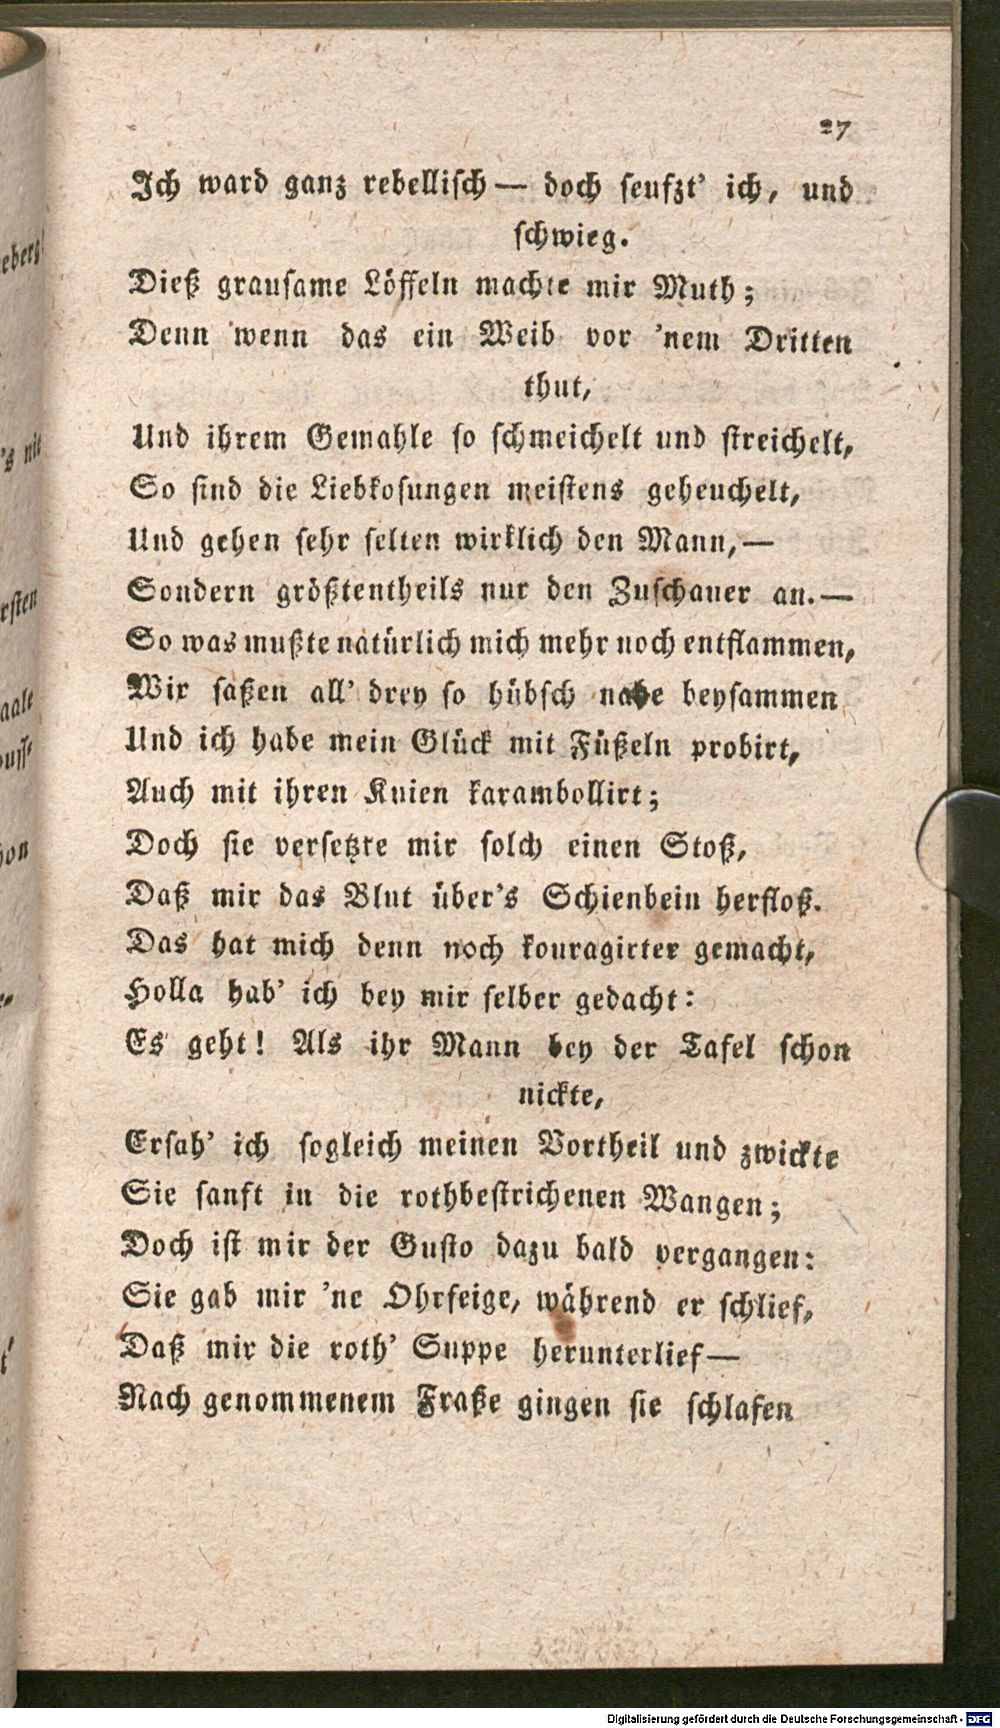 27
Ich ward ganz rebellisch — doch seufzt' ich, und
schwieg.
Dieß grausame Löffeln machte mir Muth;
Denn wenn das ein Weib vor 'nem Dritten
thut,
Und ihrem Gemahle so schmeichelt und streichelt,
So sind die Liebkosungen meistens geheuchelt,
Und gehen sehr selten wirklich den Mann, —
Sondern größtentheils nur den Zuschauer an. —
So was mußte natürlich mich mehr noch entflammen,
Wir saßen all' drey so hübsch nahe beysammen
Und ich habe mein Glück mit Füßeln probirt,
Auch mit ihren Knien karambollirt;
Doch sie versetzte mir solch einen Stoß,
Daß mir das Blut über's Schienbein herfloß.
Das hat mich denn noch kouragirter gemacht,
Holla hab' ich bey mir selber gedacht:
Es geht! Als ihr Mann bey der Tafel schon
nickte,
Ersah' ich sogleich meinen Vortheil und zwickte
Sie sanft in die rothbestrichenen Wangen;
Doch ist mir der Gusto dazu bald vergangen:
Sie gab mir 'ne Ohrfeige, während er schlief,
Daß mir die roth' Suppe herunterlief —
Nach genommenem Fraße gingen sie schlafen
eberg!
's nit
rsten
aale
hon
Digitalisierung gefördert durch die Deutsche Forschungsgemeinschaft - DFG